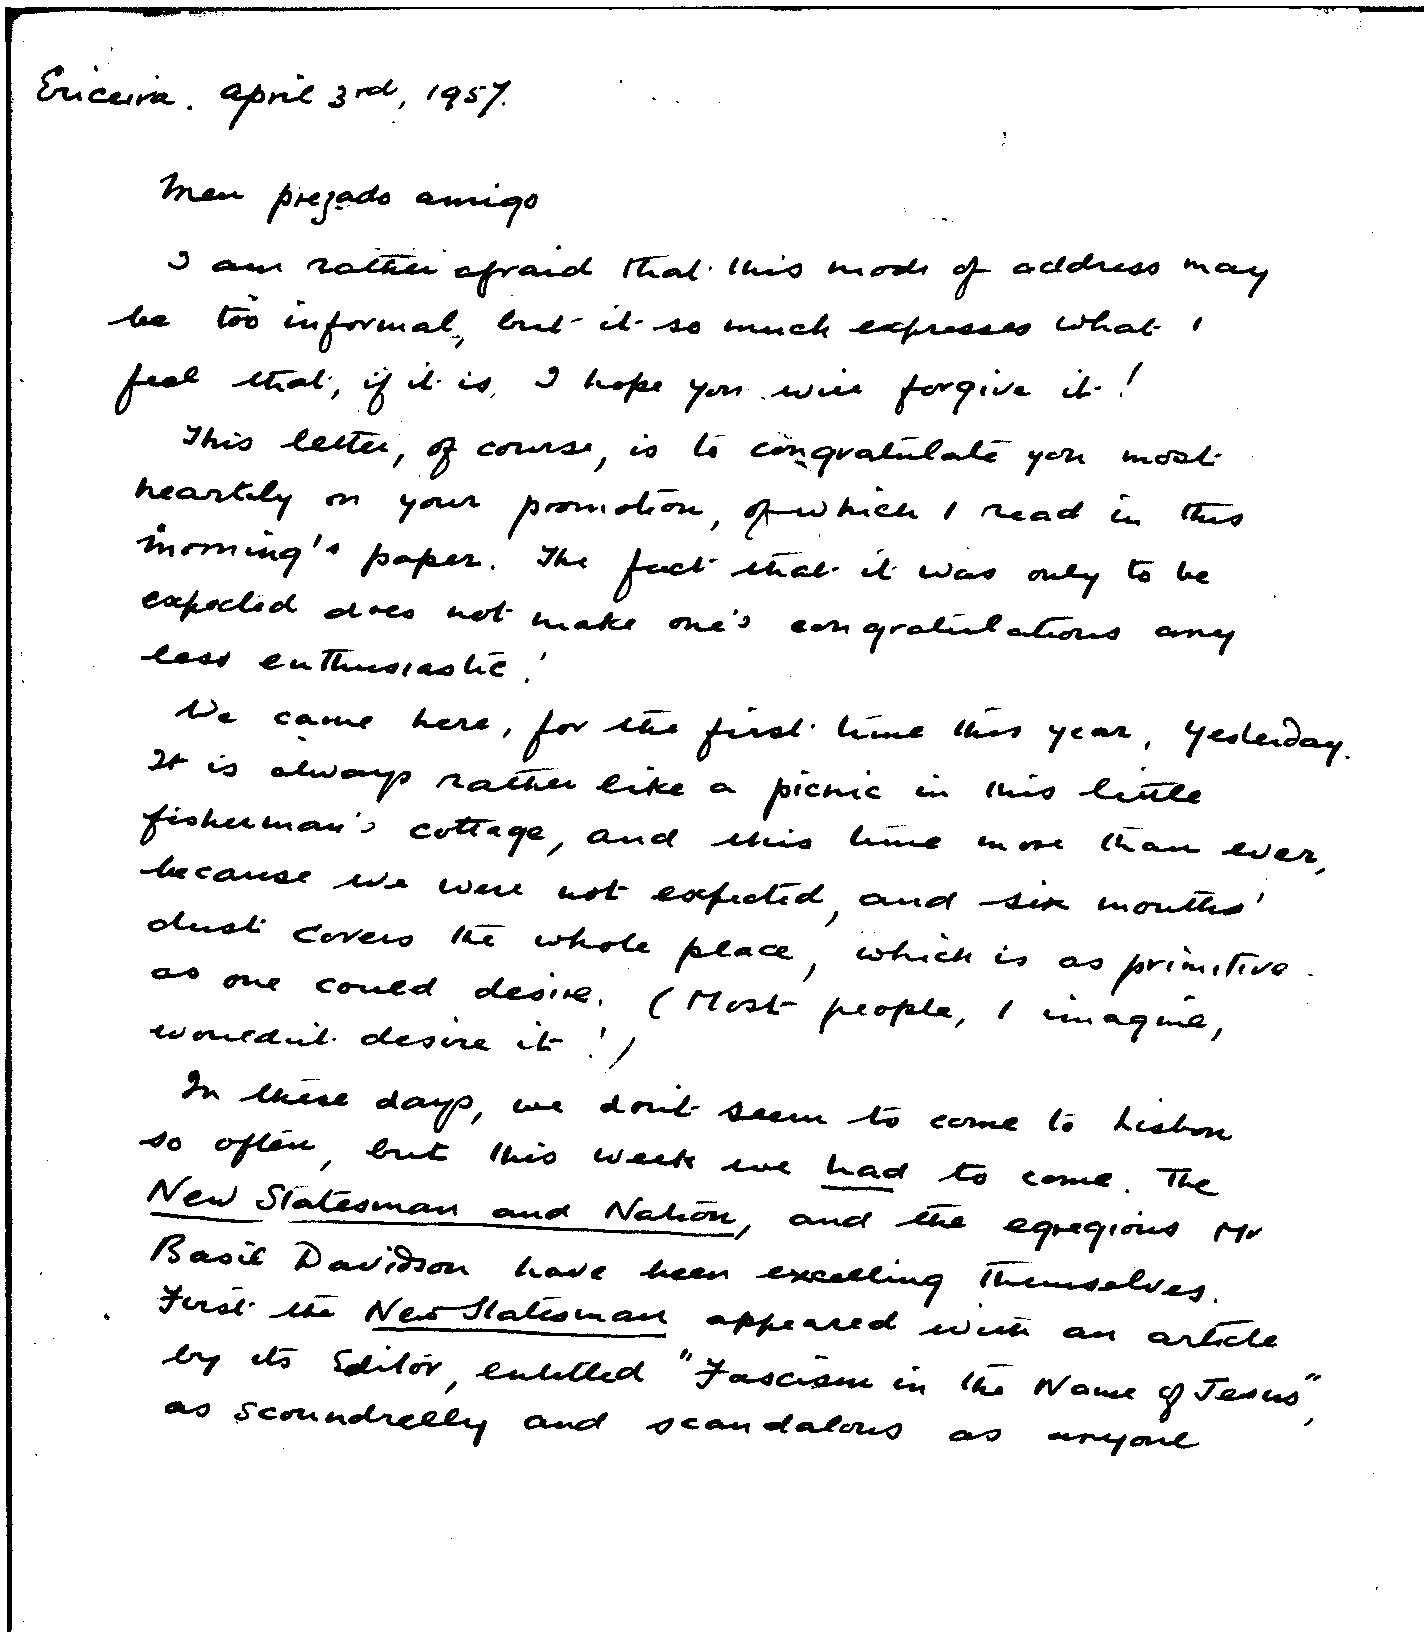 Ericeira. April 3rd, 1957.
Meu prezado amigo
I am rather afraid that this mode of address may
be too informal, but it so much expresses what I
feel that, if it is, I hope you will forgive it!
This letter, of course, is to congratulate you most
heartily on your promotion, of which I read in this
morning's paper. The fact that it was only to be
expected does not make one's congratulations any
less enthusiastic!
We came here, for the first time this year, yesterday.
It is always rather like a picnic in this little
fisherman's cottage, and this time more than ever,
because we were not expected, and six months'
dust covers the whole place, which is as primitive
as one could desire. (Most people, I imagine,
wouldn't desire it!)
In these days, we don't seem to come to Lisbon
so often, but this week we had to come. The
New Statesman and Nation, and the egregious Mr
Basil Davidson have been excelling themselves.
First the New Statesman appeared with an article
by its Editor, entitled "Fascism in the Name of Jesus",
as scoundrelly and scandalous as anyone